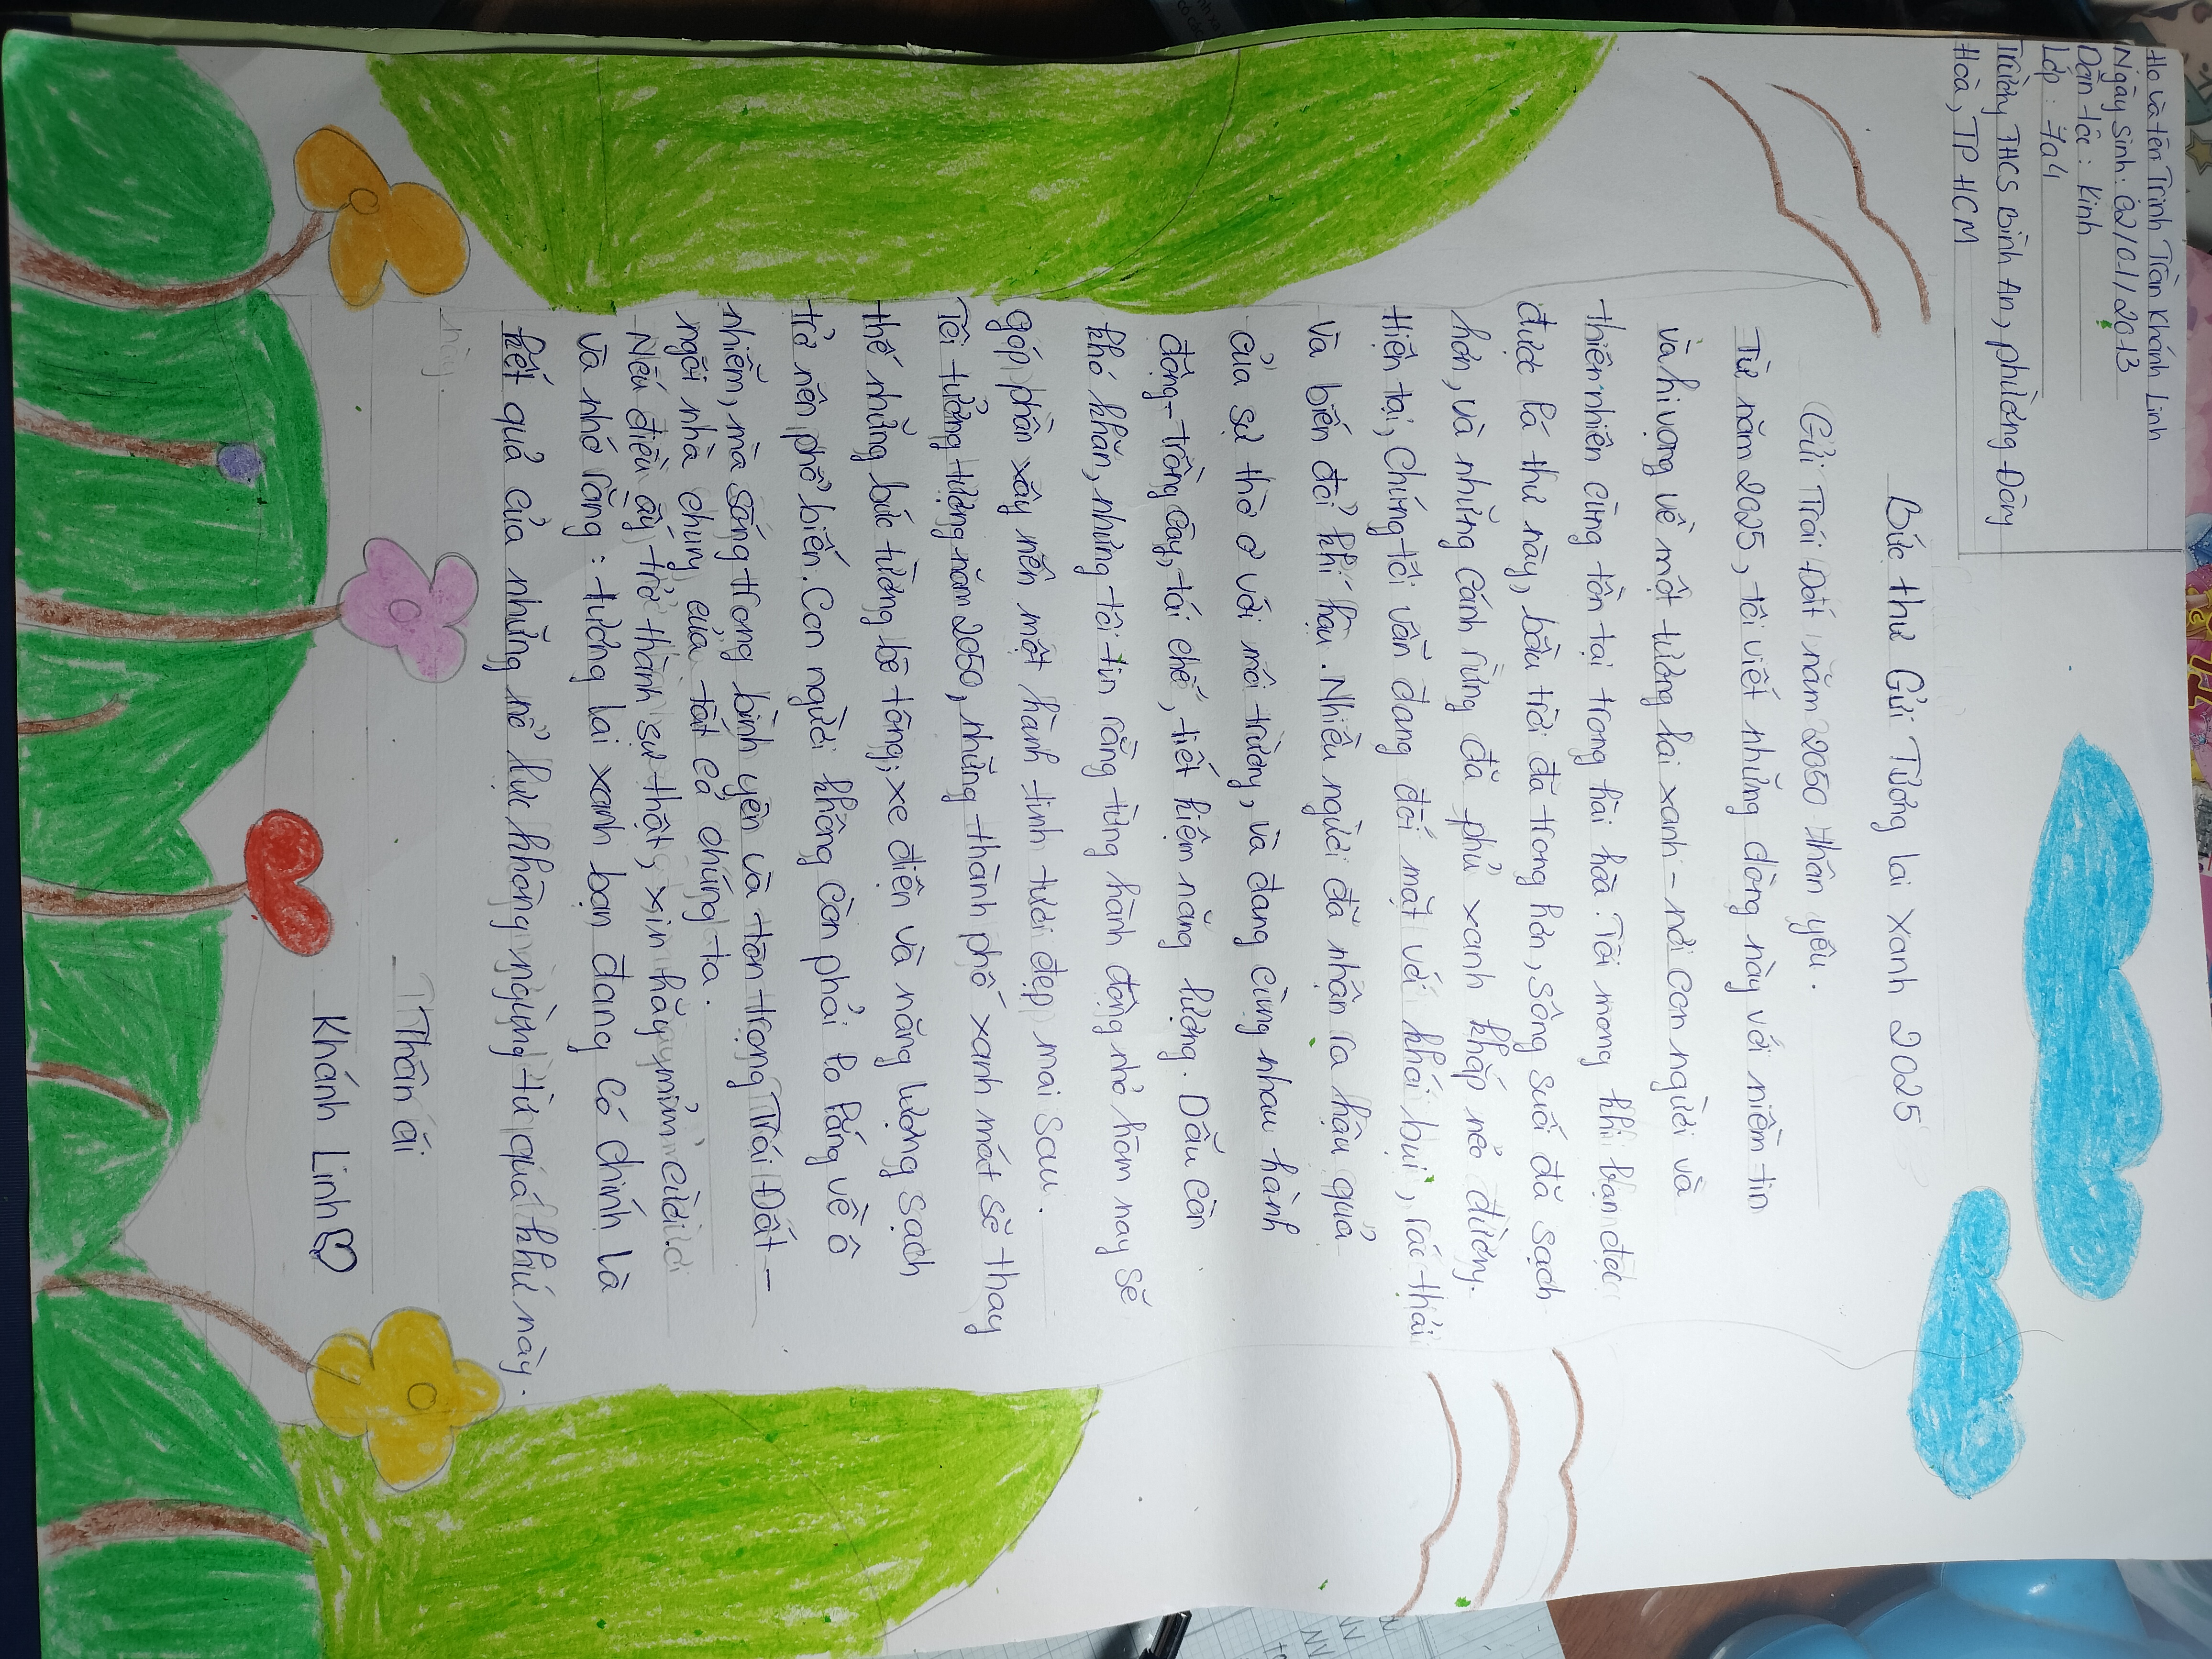 Họ và tên Trịnh Trần Khánh Linh
Ngày sinh: 02/01/2013
Dân tộc: Kinh
Lớp: 7a4
Trường THCS Bình An, phường Đông
Hoà, TP HCM
Bức thư Gửi Tương lai xanh 2025
Gửi Trái Đất năm 2050 thân yêu.
Từ năm 2025, tôi viết những dòng này với niềm tin
và hi vọng về một tương lai xanh - nơi con người và
thiên nhiên cùng tồn tại trong hài hòa. Tôi mong khi bạn đọc
được lá thư này, bầu trời đã trong hơn, sông suối đã sạch
hơn, và những cánh rừng đã phủ xanh khắp nẻo đường.
Hiện tại, chúng tôi vẫn đang đối mặt với khói bụi, rác thải
và biến đổi khí hậu. Nhiều người đã nhận ra hậu quả
của sự thờ ơ với môi trường, và đang cùng nhau hành
động - trồng cây, tái chế, tiết kiệm năng lượng. Dẫu còn
khó khăn, nhưng tôi tin rằng từng hành động nhỏ hôm nay sẽ
góp phần xây nên một hành tinh tươi đẹp mai sau.
Tôi tưởng tượng năm 2050, những thành phố xanh mát sẽ thay
thế những bức tường bê tông; xe điện và năng lượng sạch
trở nên phổ biến. Con người không còn phải lo lắng về ô
nhiễm, mà sống trong bình yên và tôn trọng Trái Đất -
ngôi nhà chung của tất cả chúng ta.
Nếu điều ấy trở thành sự thật, xin hãy mỉm cười
và nhớ rằng: tương lai xanh bạn đang có chính là
kết quả của những nỗ lực không ngừng từ quá khứ này.
này.
Thân ái
Khánh Linh♡